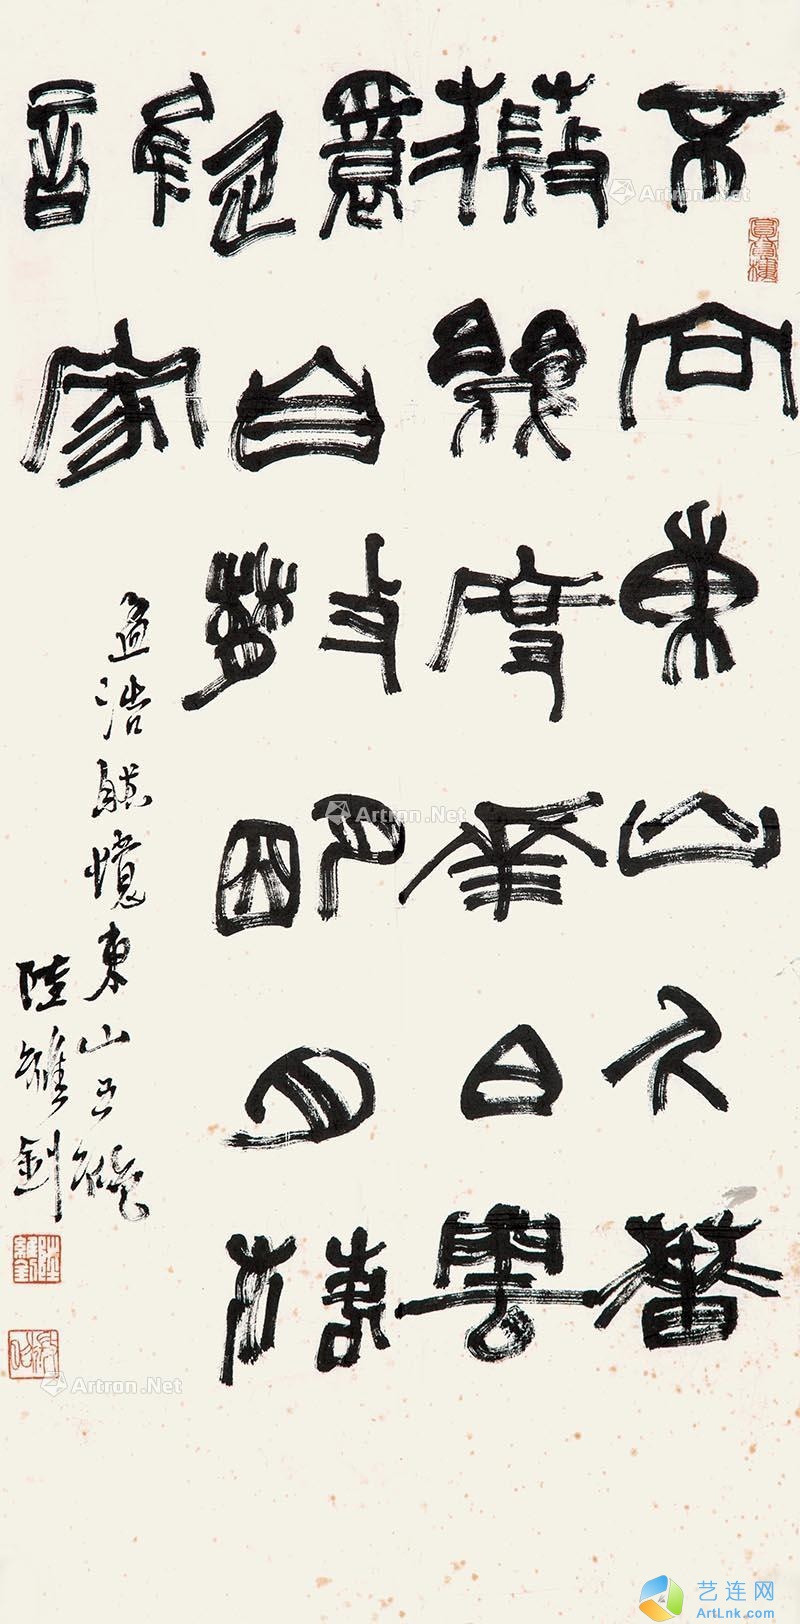 不向東山久薔
薇幾度華白雲
還自散明月落
誰家
孟浩然憶東山五絕
陸維釗
陸維釗
Artron.Net
Artron.Net
Artron.Net
艺连网
ArtLnk.com